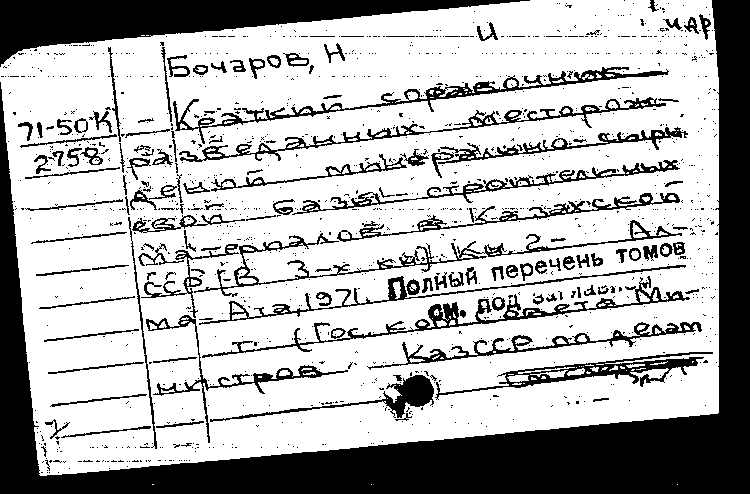 И
ЦАР
Бочаров, Н
71-50К - Краткий справочник
2758 разведанных месторож-
дений минерально-сырь
евой базы строительных
материалов в Казахской
ССР [В 3-х кн]. Кн. 2- Ал-
ма-Ата, 1971.
Полный перечень томов
см. под заглавием
т. (Гос. ком Совета Ми-
нистров КазССР по делам